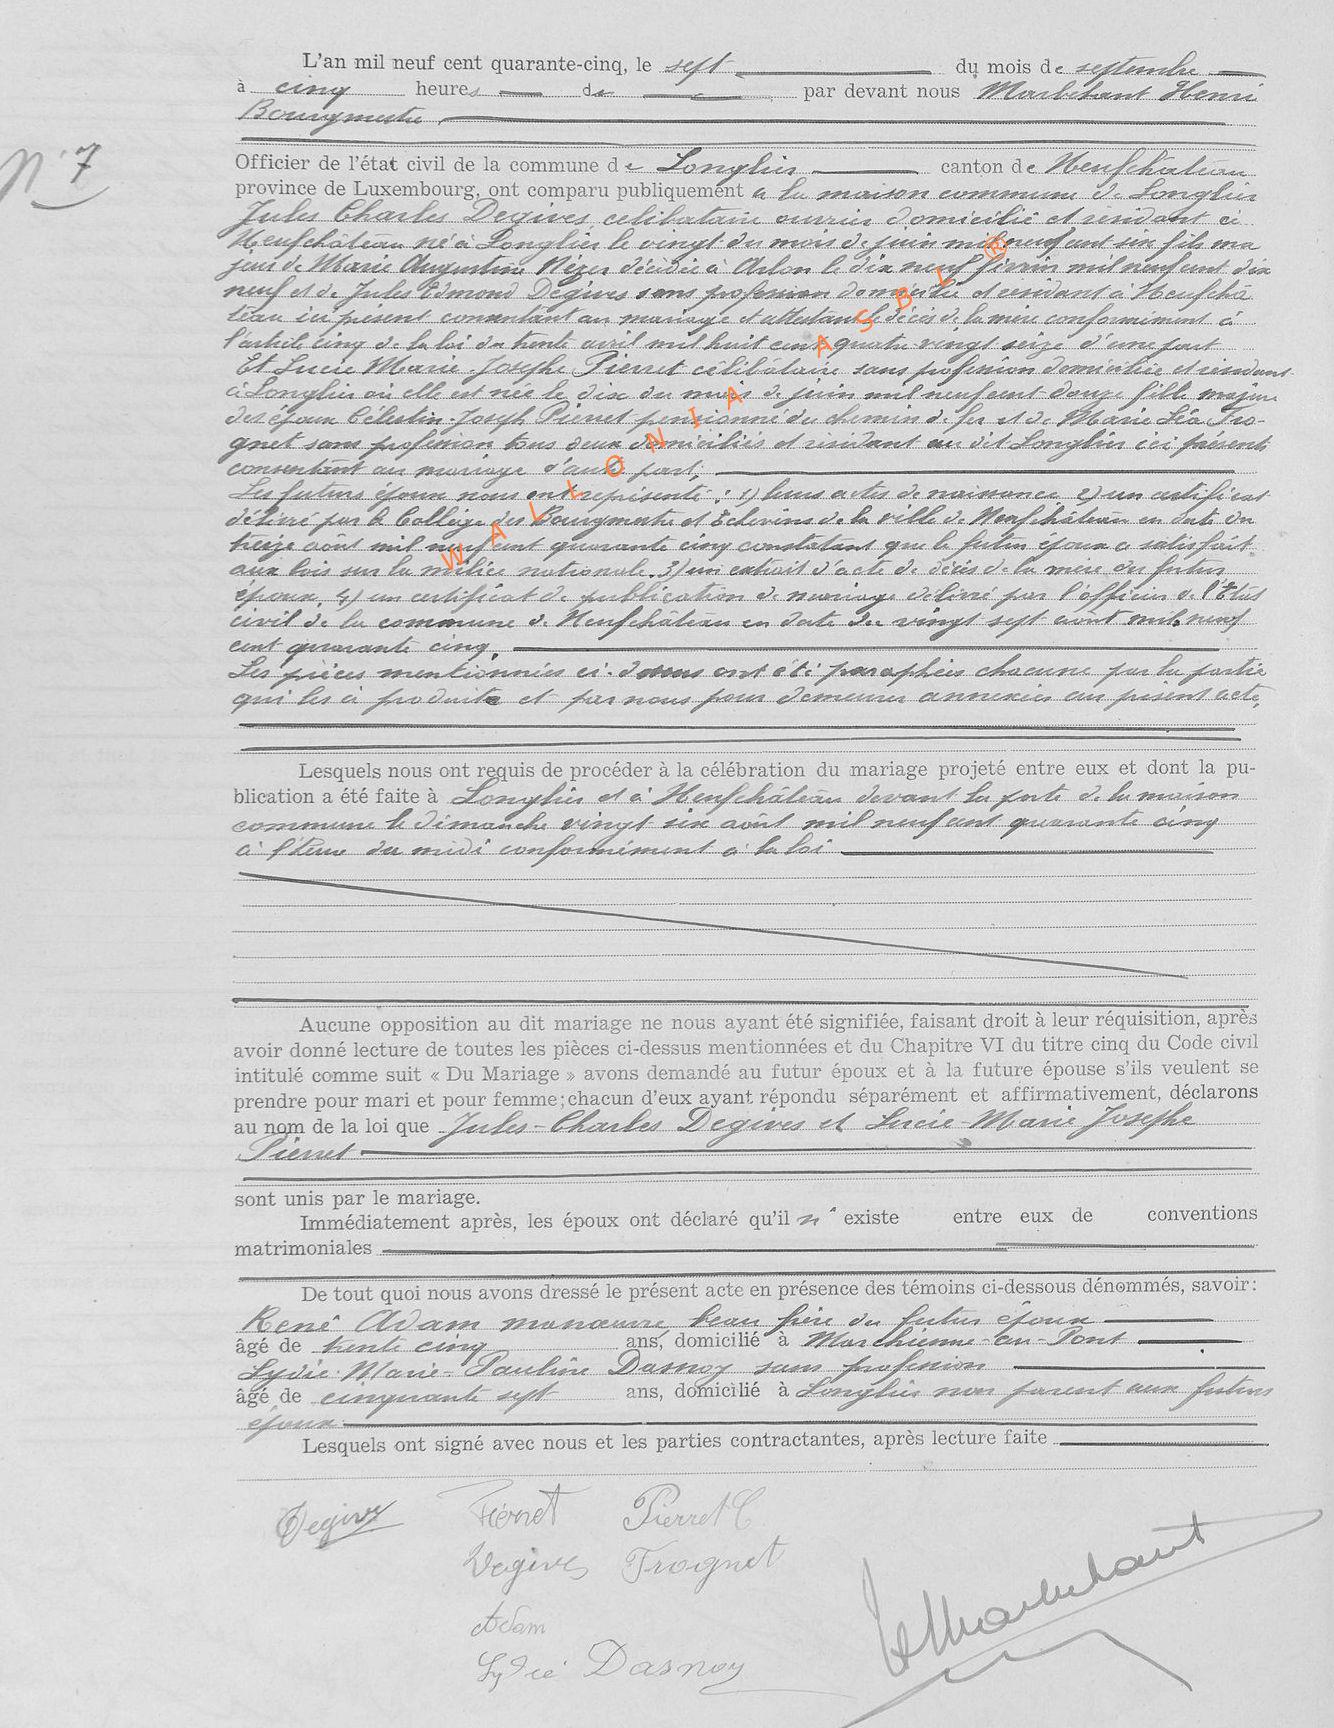 L'an mil neuf cent quarante-cinq, le sept du mois de septembre
à cinq heures de par devant nous Marbehant Henri
Bourgmestre
N° 7
Officier de l'état civil de la commune de Longlier canton de Neufchâteau
province de Luxembourg, ont comparu publiquement a la maison commune de Longlier
Jules Charles Degives celibataire ouvrier domicilié et residant à
Neufchâteau né à Longlier le vingt du mois de juin mil neuf cent six fils ma
jeur de Marie Augustine décédée à Arlon le dix neuf février mil neuf cent dix
neuf et de Jules Edmond Degives sans profession domicilié et residant à Neufchâ
teau ici présent consentant au mariage et attestant le décès de la mère conformément à
l'article cinq de la loi du trente avril mil huit cent quatre vingt seize d'une part
Et Lucie Marie Josephe Pierret célibataire sans profession domiciliée et residant
à Longlier où elle est née le dix du mois de juin mil neuf cent douze fille majeure
des époux Célestin Joseph Pierret pensionné du chemin de fer et de Marie Léa Tro-
gnet sans profession tous deux domiciliés et residant au dit Longlier ici présents
consentant au mariage d'autre part,
Les futurs époux nous ont représenté : 1) leurs actes de naissance 2) un certificat
délivré par le Collège des Bourgmestre et Echevins de la ville de Neufchâteau en date du
treize août mil neuf cent quarante cinq constatant que le futur époux a satisfait
aux lois sur la milice nationale. 3) un extrait d'acte de décès de la mère du futur
époux. 4) un certificat de publication de mariage délivré par l'officier de l'Etat
civil de la commune de Neufchâteau en date du vingt sept août mil neuf
cent quarante cinq.
Les pièces mentionnées ci-dessus ont été paraphées chacune par la partie
qui les à produite et par nous pour demeurer annexées au présent acte,
Lesquels nous ont requis de procéder à la célébration du mariage projeté entre eux et dont la pu-
blication a été faite à Longlier et à Neufchâteau devant la porte de la maison
commune le dimanche vingt six août mil neuf cent quarante cinq
à l'heure du midi conformément à la loi
Aucune opposition au dit mariage ne nous ayant été signifiée, faisant droit à leur réquisition, après
avoir donné lecture de toutes les pièces ci-dessus mentionnées et du Chapitre VI du titre cinq du Code civil
intitulé comme suit « Du Mariage » avons demandé au futur époux et à la future épouse s'ils veulent se
prendre pour mari et pour femme; chacun d'eux ayant répondu séparément et affirmativement, déclarons
au nom de la loi que Jules-Charles Degives et Lucie-Marie Josephe
Pierret
sont unis par le mariage.
Immédiatement après, les époux ont déclaré qu'il n' existe entre eux de conventions
matrimoniales
De tout quoi nous avons dressé le présent acte en présence des témoins ci-dessous dénommés, savoir:
René Adam manœuvre beau frère du futur époux
âgé de trente cinq ans, domicilié à Marchienne-au-Pont
Lydie-Marie-Pauline Dasnoy sans profession
âgé de cinquante sept ans, domicilié à Longlier non parent aux futurs
époux
Lesquels ont signé avec nous et les parties contractantes, après lecture faite
Degives Pierret Pierret C
Degives Trognet
Adam
Lydie Dasnoy
H Marbehant
WALLONIA ASBL ®